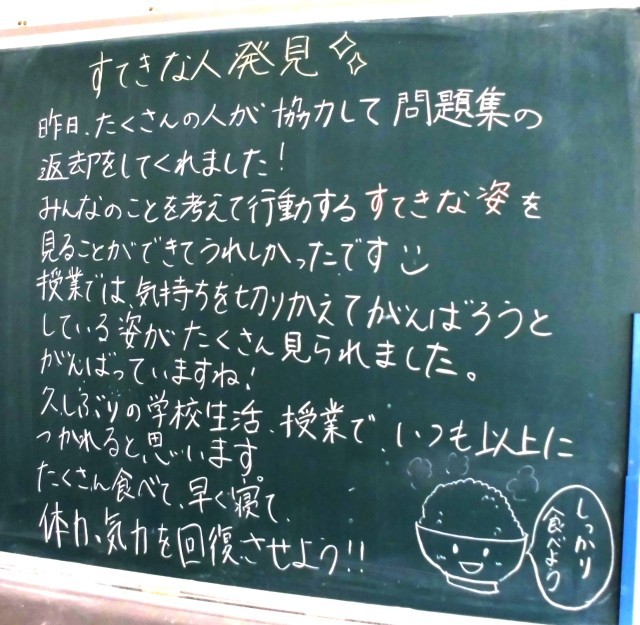 すてきな人発見
昨日、たくさんの人が協力して問題集の
返却をしてくれました!
みんなのことを考えて行動するすてきな姿を
見ることができてうれしかったです
授業では、気持ちを切りかえてがんばろうと
している姿がたくさん見られました。
がんばっていますね!
久しぶりの学校生活、授業で、いつも以上に
つかれると思います。
たくさん食べて、早く寝て、
体力、気力を回復させよう!!
しっかり
食べよう